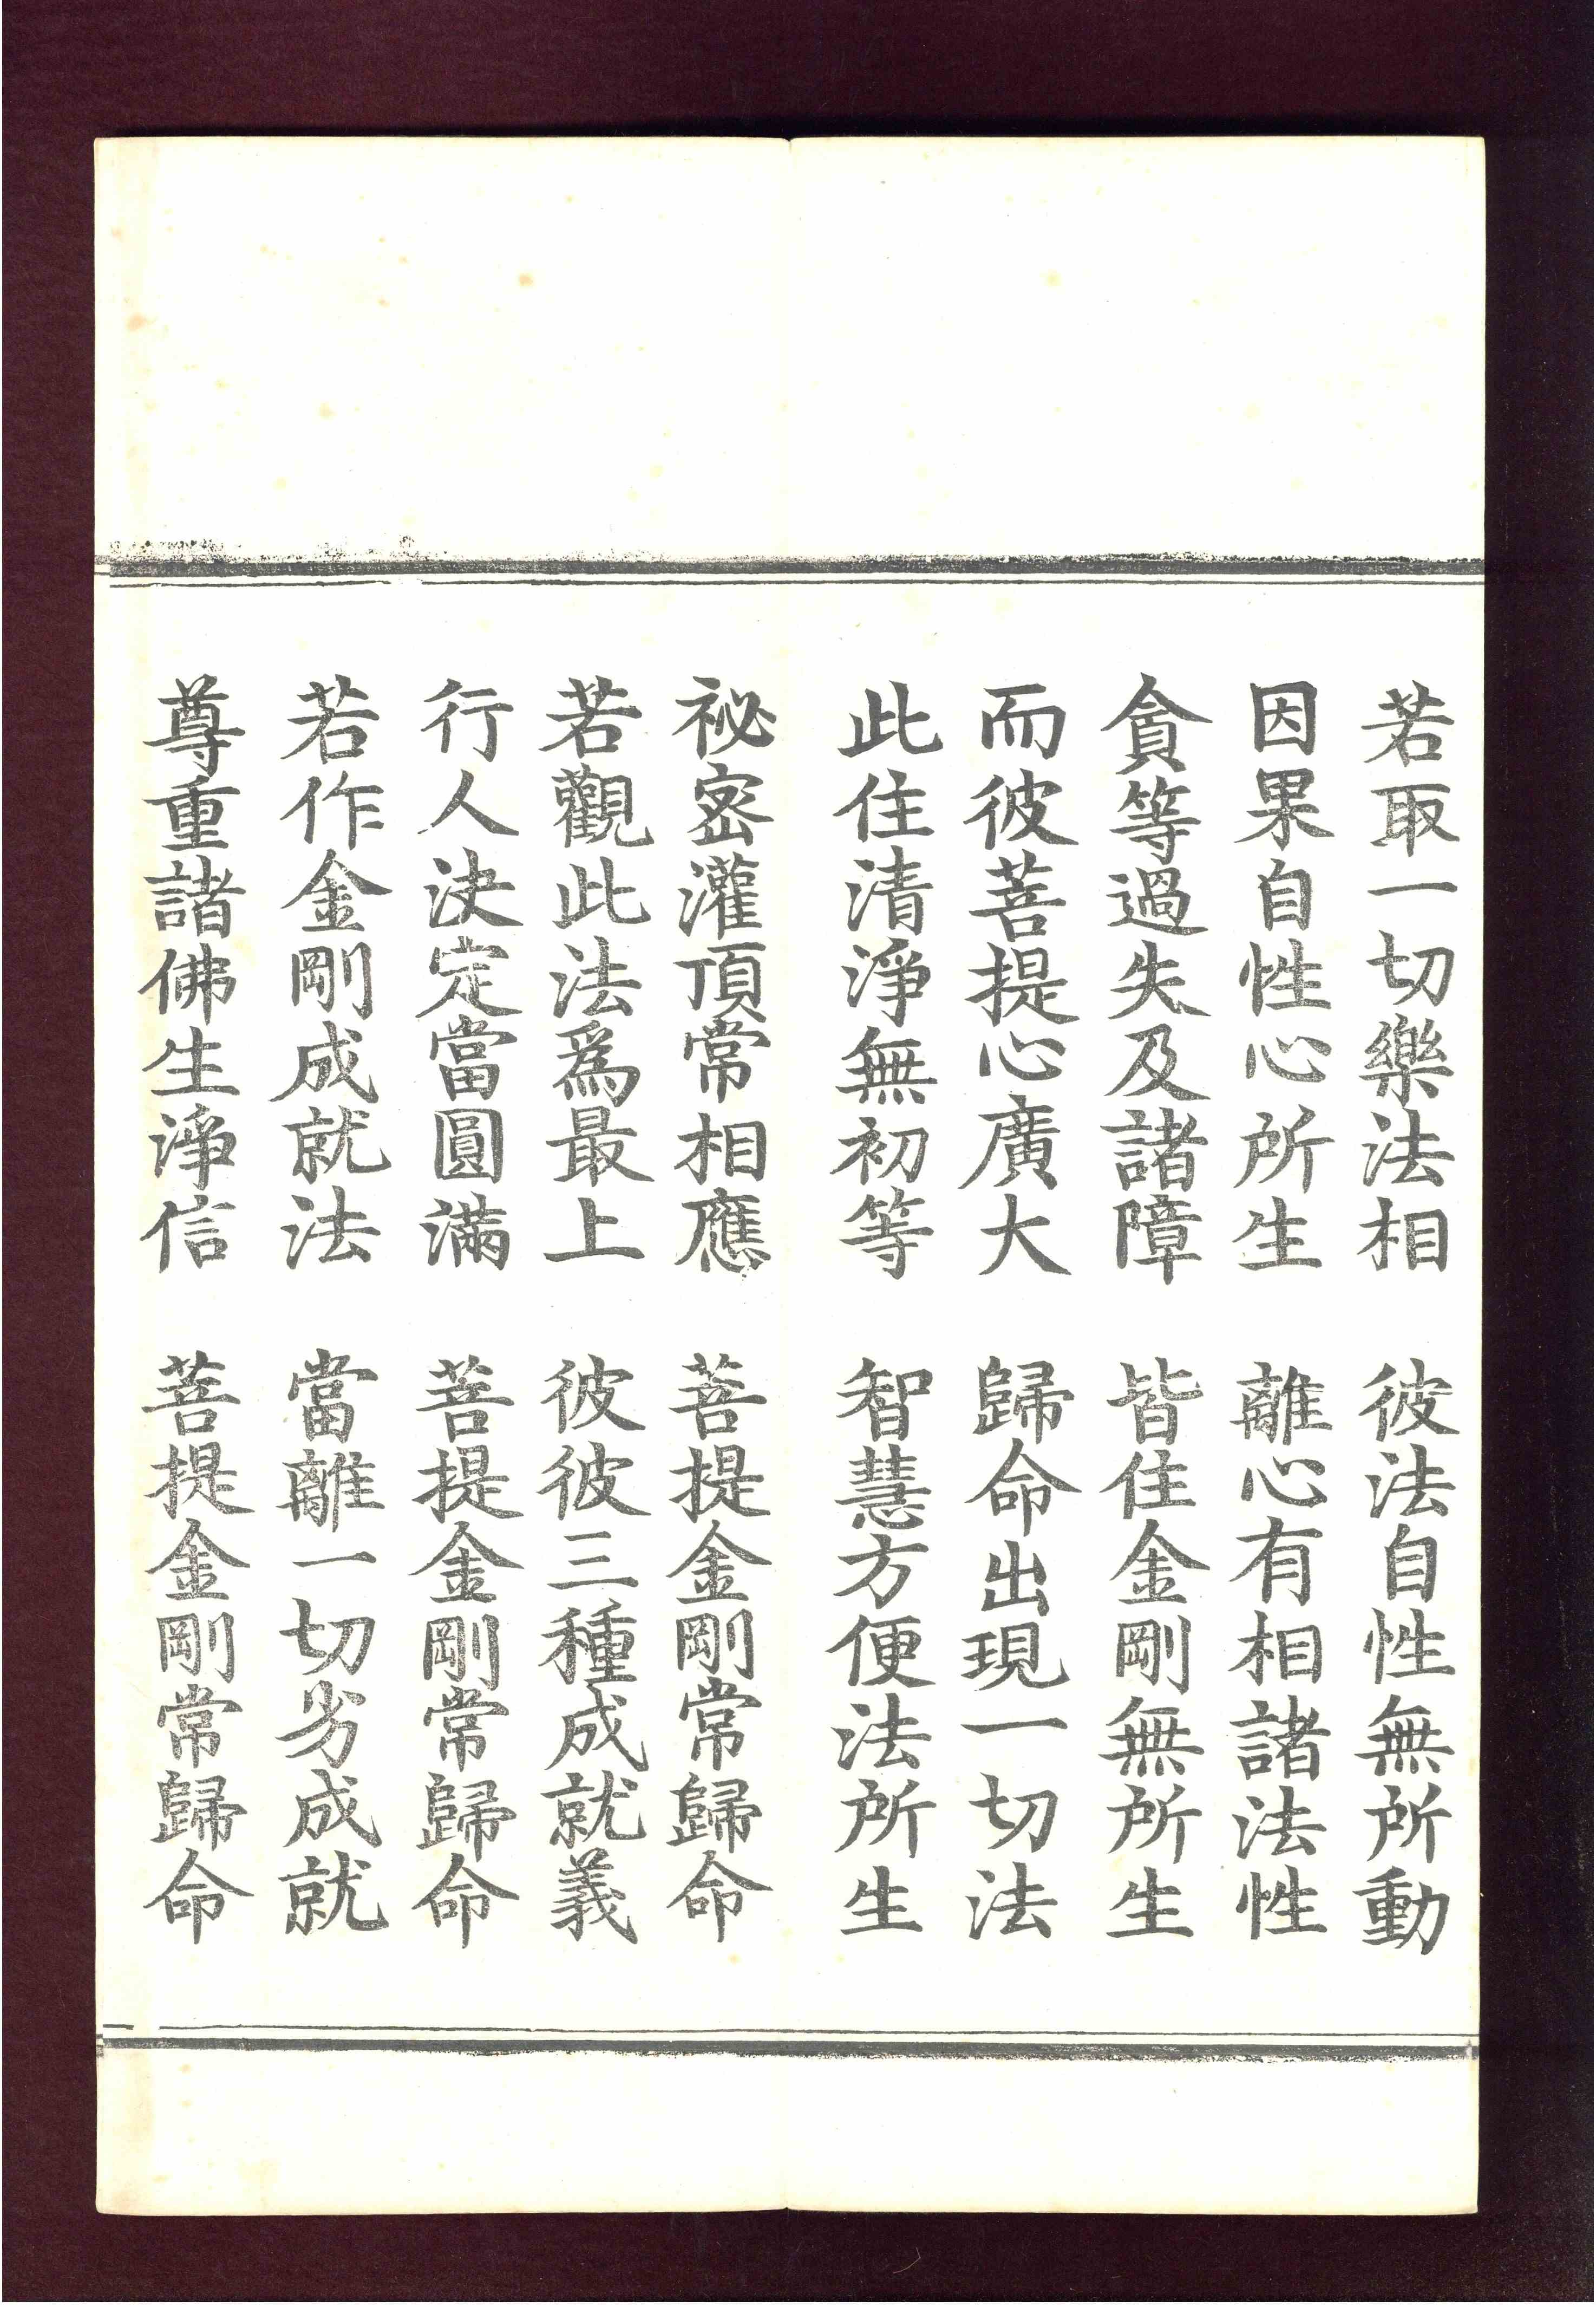 若取一切樂法相　彼法自性無所動
因果自性心所生　離心有相諸法性
貪等過失及諸障　皆住金剛無所生
而彼菩提心廣大　歸命出現一切法
此住清淨無初等　智慧方便法所生
祕密灌頂常相應　菩提金剛常歸命
若觀此法爲最上　彼彼三種成就義
行人決定當圓滿　菩提金剛常歸命
若作金剛成就法　當離一切劣成就
尊重諸佛生淨信　菩提金剛常歸命